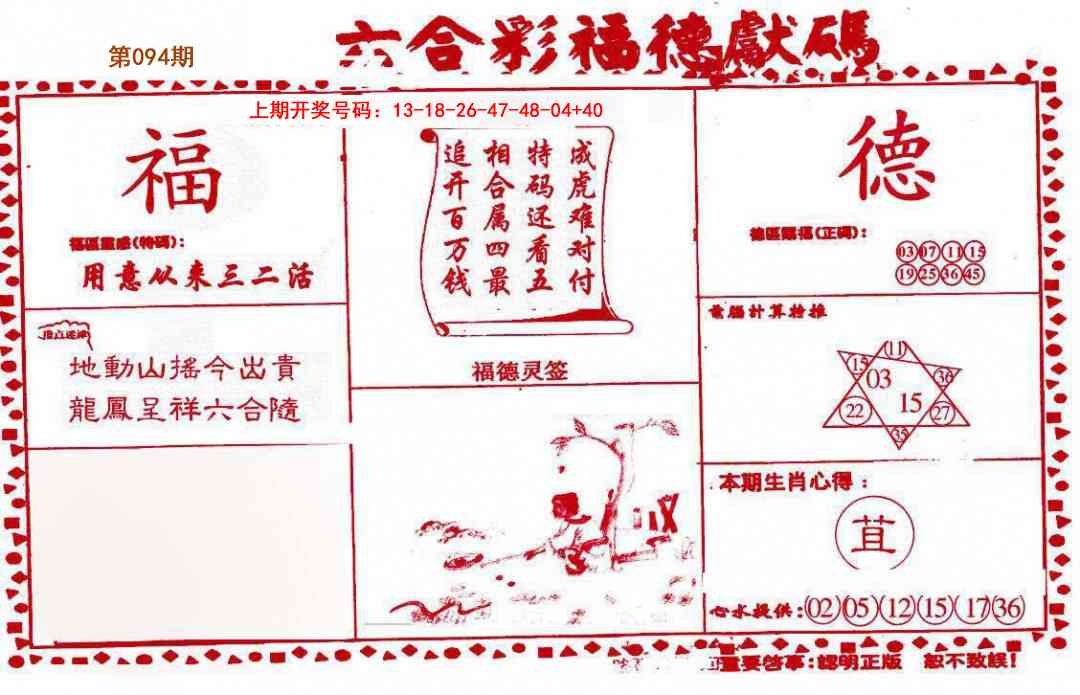 第094期
六合彩福德獻碼
上期开奖号码：13-18-26-47-48-04+40
福
福區靈感(特碼)：
用意从来三二活
地動山搖今出貴
龍鳳呈祥六合隨
成虎难对付
特码还看五
相合属四最
追开百万钱
福德灵签
德
德區賜福(正碼)：
03 07 11 15
19 25 36 45
電腦計算特推
11
15
36
03
15
22
27
35
本期生肖心得：
苴
心水提供：(02)(05)(12)(15)(17)(36)
重要啓事：認明正版 恕不致誤！